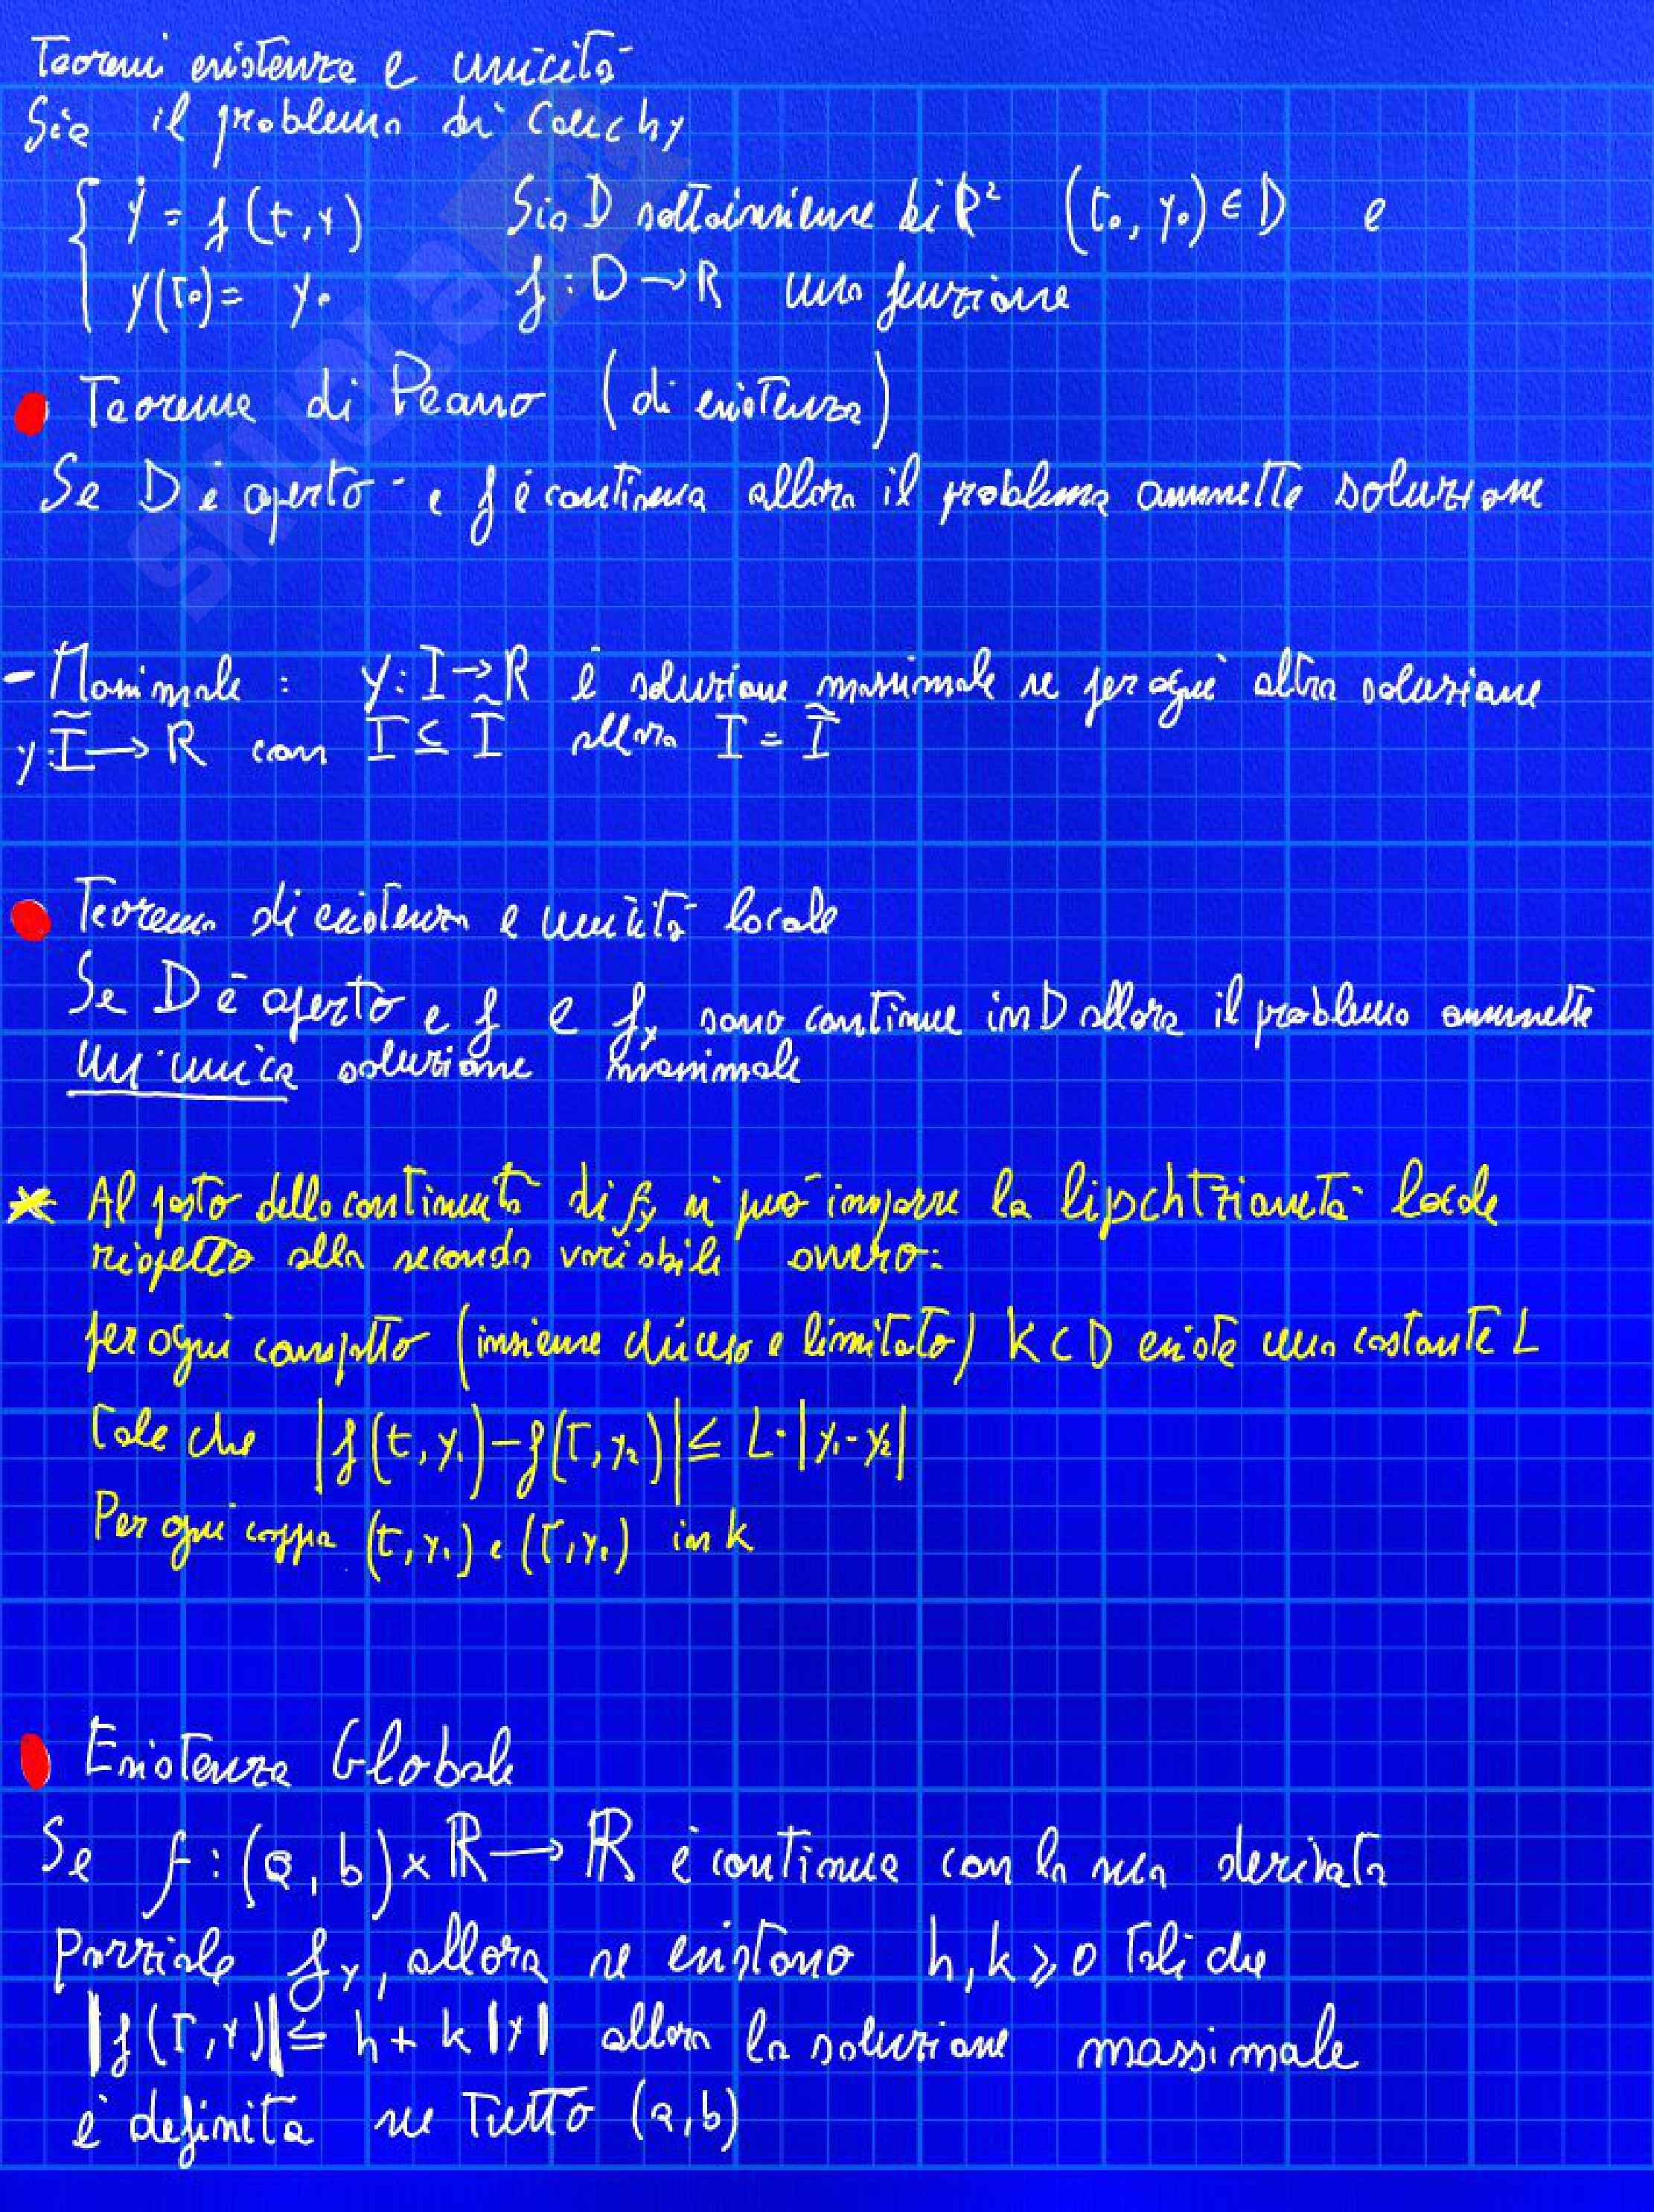 Teoremi esistenza e unicità
Sia il problema di Cauchy
{ ẏ = f(t,y) Sia D sottoinsieme di R² (t₀, y₀) ∈ D e
y(t₀) = y₀ f: D → R una funzione
Teorema di Peano (di esistenza)
Se D è aperto e f è continua allora il problema ammette soluzione
- Massimale : y: I → R è soluzione massimale se per ogni altra soluzione
y: Ĩ → R con I ⊆ Ĩ allora I = Ĩ
Teorema di esistenza e unicità locale
Se D è aperto e f e f_y sono continue in D allora il problema ammette
un'unica soluzione massimale
* Al posto della continuità di f_y si può imporre la lipschtzianetà locale
rispetto alla seconda variabile ovvero:
per ogni compatto (insieme chiuso e limitato) K ⊂ D esiste una costante L
tale che |f(t,y₁)-f(t,y₂)| ≤ L·|y₁-y₂|
Per ogni coppia (t,y₁) e (t,y₂) in K
Esistenza Globale
Se f: (a,b) × ℝ → ℝ è continua con la sua derivata
parziale f_y, allora se esistono h, k ⩾ 0 tali che
|f(t,y)| ≤ h + k|y| allora la soluzione massimale
è definita su tutto (a,b)
SKUOLA